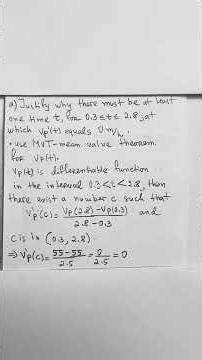 a) Justify why there must be at least
one time t, for 0.3≤t≤2.8, at
which Vp'(t) equals 0 m/h.
• use MVT-mean value theorem
for Vp(t).
Vp(t) is differentiable function
in the interval 0.3<t<2.8, then
there exist a number c such that
V'p(c)= Vp(2.8)-Vp(0.3) / 2.8-0.3 and
c is in (0.3, 2.8)
⇒ V'p(c)= 55-55 / 2.5 = 0 / 2.5 = 0